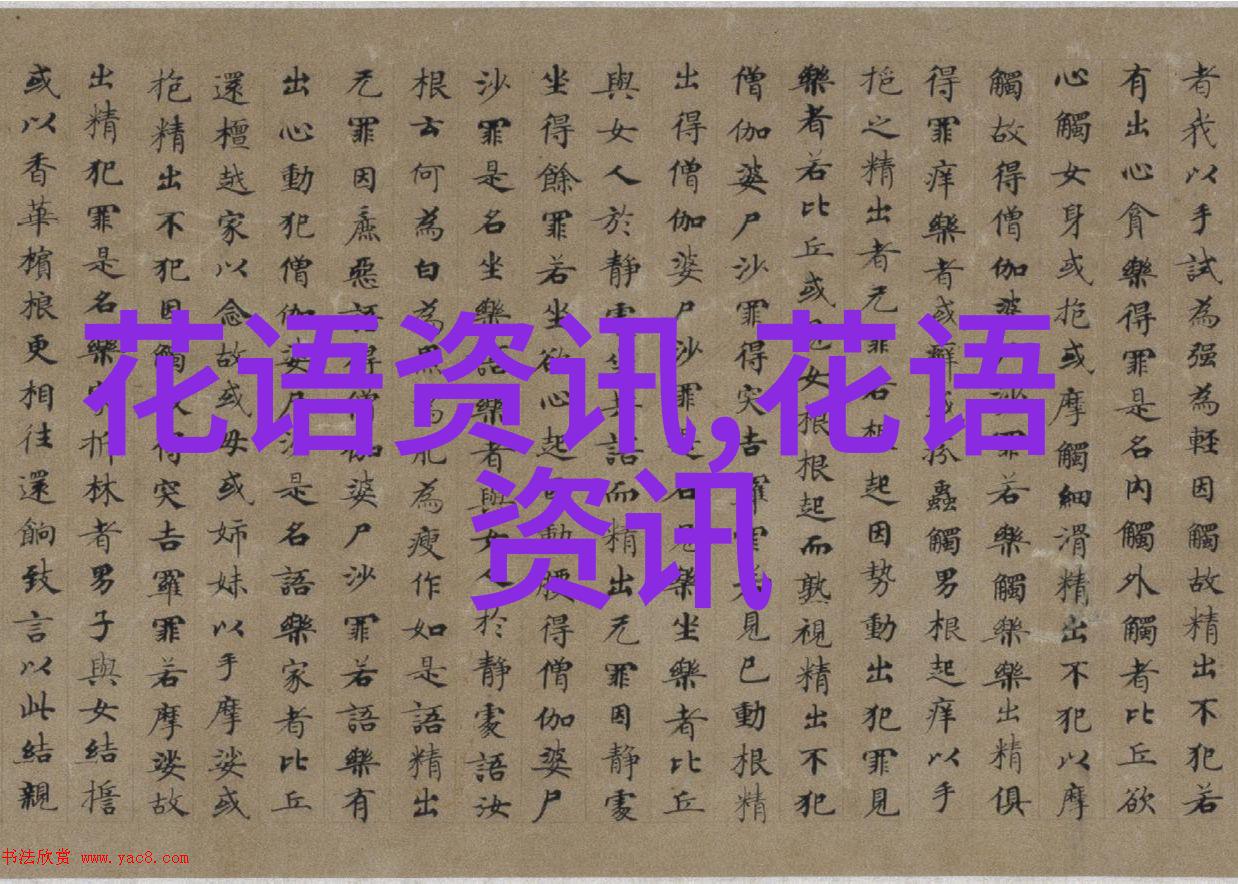 花语资讯,花语
资讯
者我以手試為强為輕因觸故精出不犯若
有出心貪樂得罪是名内觸外觸者比丘欲
心觸女身或抱或摩觸細滑精出不犯以摩
觸故得僧伽婆沙罪若樂觸樂樂出精俱
得罪痒樂者或癬或疥蟲觸男根起痒以手
抱之精出者无罪若根起因勢動出犯罪見
樂者若比丘或見女根根起而熟視精出不犯
僧伽婆尸沙罪得突吉羅罪若見已動根精
出得僧伽婆尸沙罪是名見樂坐樂者比丘
與女人於静處坐共語而精出无罪因静處
坐得餘罪若坐欲心起動腰得僧伽婆尸
沙罪是名坐樂語樂者與女人於静處語汝
根云何為白為黑為肥為瘦作如是語精出
无罪因麁惡語得僧伽婆尸沙罪若語樂有
出心動犯僧伽婆尸沙是名語樂家者比丘
還檀越家以念故或母或姊妹以手摩娑或
抱精出不犯因觸故得突吉羅罪若摩娑故
出精犯罪是名樂家折林者男子與女結誓
或以香華檳榔更相往還餉致言以此結親
书法欣赏 www.yac8.com